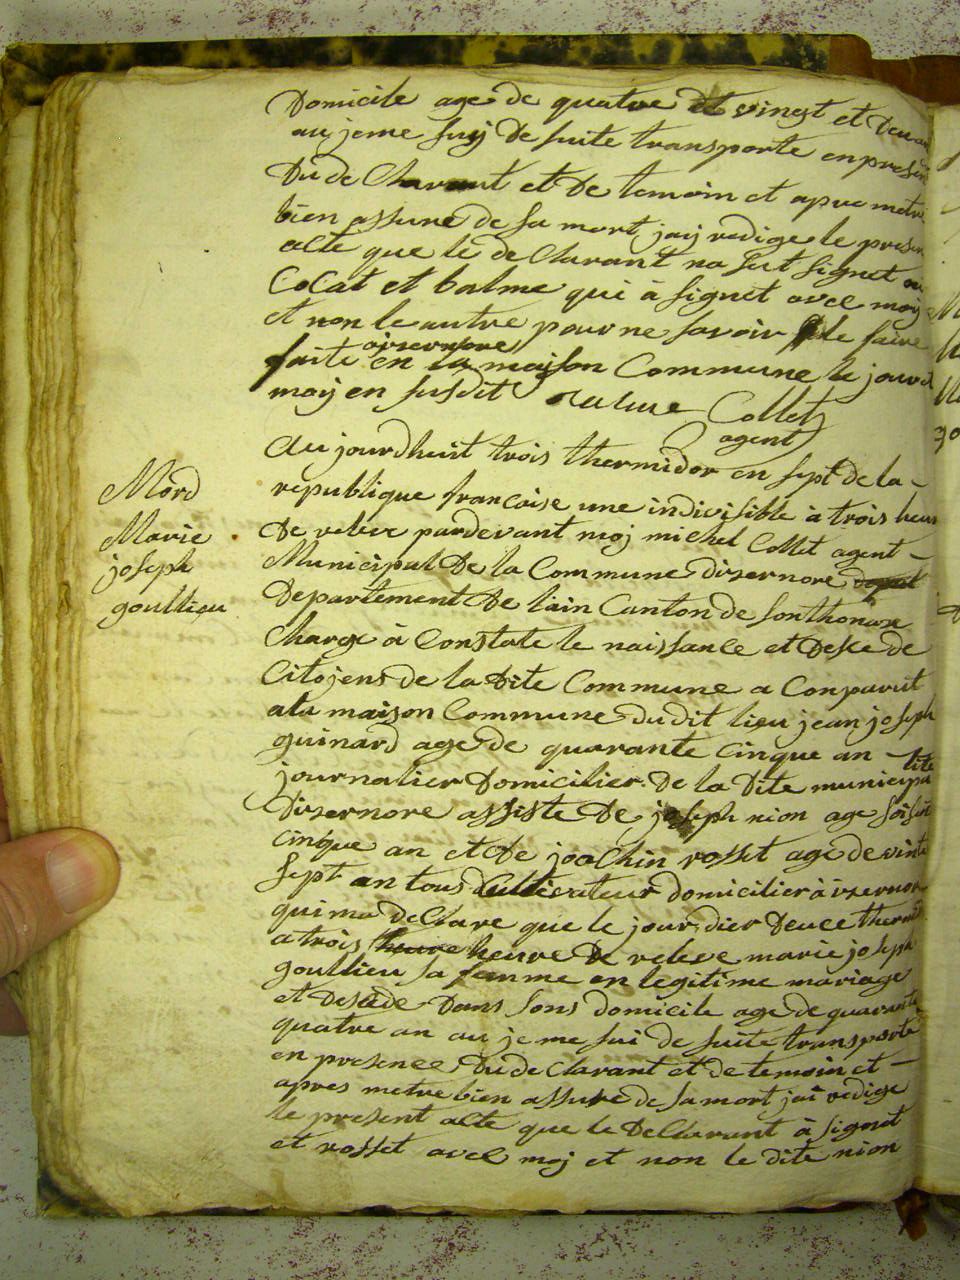 Domicile age de quatre et vingt et deu an
au jeme suij de suite transporte en presen
du de Clarant et de temoin et apre metre
bien assure de sa mort jaij redige le presen
acte que le de Clarant na sut signet
Cocat et balme qui à signet avec moij
et non le autre pour ne savoir le faire
disernore
faite en la maison Commune le jour et
moij en susdit Collet
agent
Au jourdheuit trois thermidor en sept de la
republique francoise une indivisible à trois heur
de releve pardevant moj michel Collet agent
Municipal De la Commune disernore
Departement De lain Canton de Sonthonax
Charge à Constate le naissance et desce de
Citojens de la Dite Commune a Conparut
ala maison Commune dudit lieu jean joseph
guinard age de quarante cinque an
journalier Domicilier De la Dite municipalite
Disernore assiste De joseph nion age soisent
cinque an et de joachin rosset age de vinte
sept an tous Cultivateur domicilier à isernor
qui ma deClare que le jour dier deuce thermi
a trois heure heure de releve marie joseph
goullieu sa femme en legitime mariage
et desede Dans sons domicile age de quarante
quatre an au je me sui de suite transporte
en presence Du de Clarant et de temoin et
apres metre bien assure de sa mort jai redige
le present acte que le DeClarant à signet
et rosset avec moj et non le dite nion
Mord
Marie
joseph
goullieu